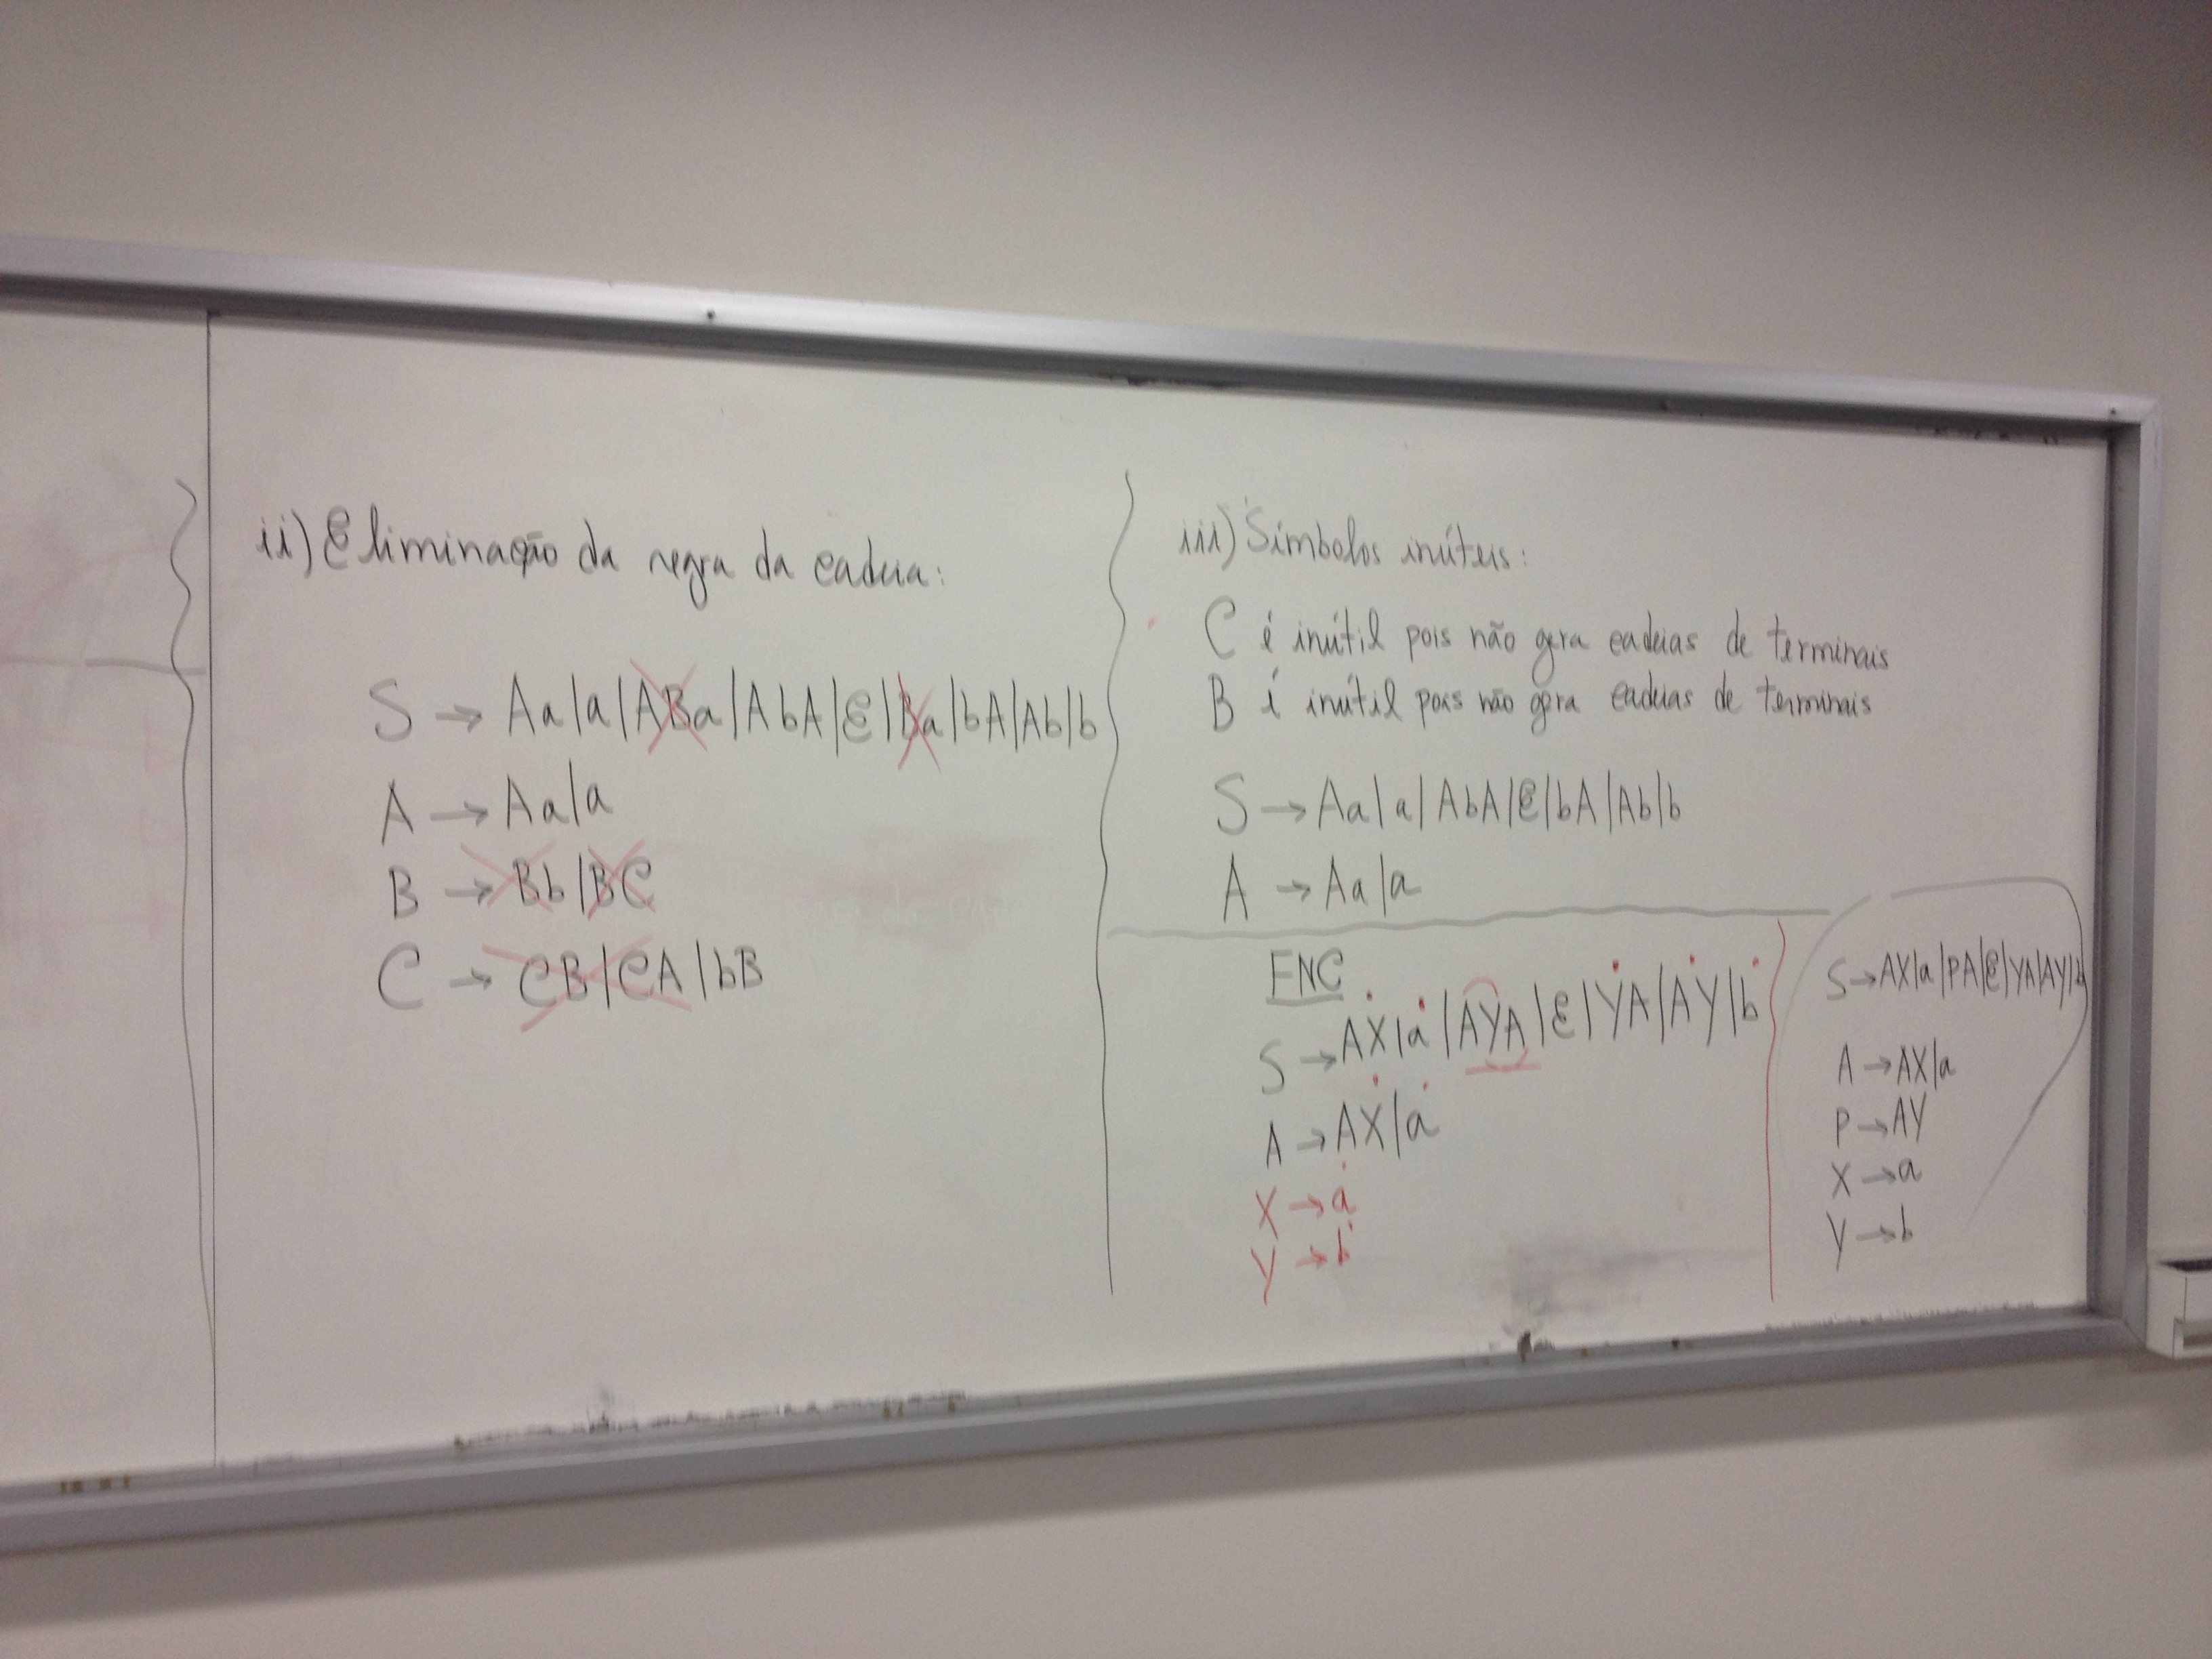 ii) Eliminação da regra da cadeia:
S → Aa|a|ABa|AbA|ε|Ba|bA|Ab|b
A → Aa|a
B → Bb|BC
C → CB|CA|bB
iii) Símbolos inúteis:
C é inútil pois não gera cadeias de terminais
B é inútil pois não gera cadeias de terminais
S → Aa|a|AbA|ε|bA|Ab|b
A → Aa|a
FNC
S → AX|a|AYA|ε|YA|AY|b
A → AX|a
X → a
Y → b
S → AX|a|PA|ε|YA|AY|b
A → AX|a
P → AY
X → a
Y → b